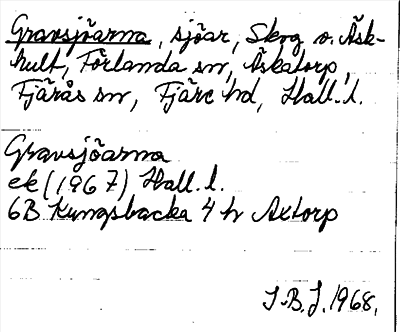 Gravsjöarna, sjöar, Skog o. Äsk-
hult, Förlanda sn, Äskatorp,
Fjärås sn, Fjäre hd, Hall. l.
Gravsjöarna
ek (1967) Hall. l.
6B Kungsbacka 4 h Axtorp
J.B.J. 1968.